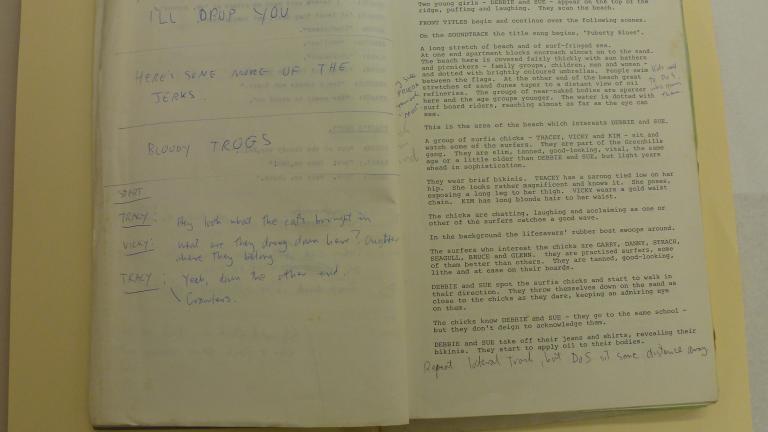 I'LL DROP YOU
HERE'S SOME MORE OF THE
JERKS.
BLOODY TROGS
START
TRACY: Hey look what the cat's brought in
VICKY: What are they doing down here?
where they belong
TRACY: Yeah, down the other end.
Crawlers.
Two young girls - DEBBIE and SUE - appear on the top of the
ridge, puffing and laughing. They scan the beach.
FRONT TITLES begin and continue over the following scenes.
On the SOUNDTRACK the title song begins, 'Puberty Blues'.
A long stretch of beach and of surf-fringed sea.
At one end apartment blocks encroach almost on to the sand.
The beach here is covered fairly thickly with sun bathers
and picnickers - family groups, children, men and women -
and dotted with brightly coloured umbrellas. People swim
between the flags. At the other end of the beach great
stretches of sand dunes taper to a distant view of oil
refineries. The groups of near-naked bodies are sparser
here and the age groups younger. The water is dotted with
surf board riders, reaching almost as far as the eye can
see.
This is the area of the beach which interests DEBBIE and SUE.
A group of surfie chicks - TRACEY, VICKY and KIM - sit and
watch some of the surfers. They are part of the Greenhills
gang. They are slim, tanned, good-looking, vital, the same
age or a little older than DEBBIE and SUE, but light years
ahead in sophistication.
They wear brief bikinis. TRACEY has a sarong tied low on her
hip. She looks rather magnificent and knows it. She poses,
exposing a long leg to her thigh. VICKY wears a gold waist
chain. KIM has long blonde hair to her waist.
The chicks are chatting, laughing and acclaiming as one or
other of the surfers catches a good wave.
In the background the lifesavers' rubber boat swoops around.
The surfers who interest the chicks are GARRY, DANNY, STRACH,
SEAGULL, BRUCE and GLENN. they are practised surfers, some
of them better than others. They are tanned, good-looking,
lithe and at ease on their boards.
DEBBIE and SUE spot the surfie chicks and start to walk in
their direction. They throw themselves down on the sand as
close to the chicks as they dare, keeping an admiring eye
on them.
The chicks know DEBBIE and SUE - they go to the same school -
but they don't deign to acknowledge them.
DEBBIE and SUE take off their jeans and shirts, revealing their
bikinis. They start to apply oil to their bodies.
Repeat lateral track, but D&S sit some distance away